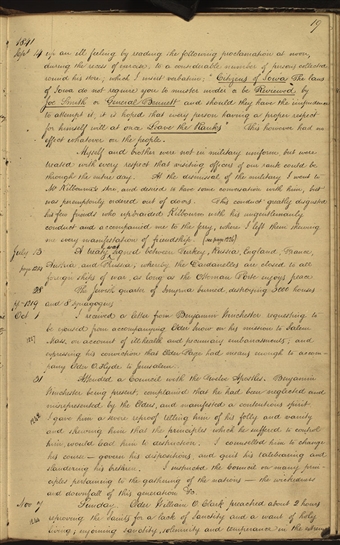 19
1841
Sept 14 up an ill feeling by reading the following proclamation at noon,
during the recess of exercise, to a considerable number of persons collected
round his store, which I insert verbatim; "Citizens of Iowa The laws
of Iowa do not require you to muster under or be Reviewed by
Joe Smith or General Bennett and should they have the impudence
to attempt it, it is hoped that every person having a proper respect
for himself will at once Leave the Ranks" This however had no
effect whatever on the people.
Myself and brother were not in military uniform, but were
treated with every respect that visiting officers of our rank could be
through the entire day. At the dismissal of the military I went to
Mr Kilbourn's store, and desired to have some conversation with him, but
was peremptorily ordered out of doors. This conduct greatly disgusted
his few friends who upbraided Kilbourn with his ungentlemanly
conduct and accompanied me to the ferry, where I left them showing
me every manifestation of friendship.
July 13 A treaty was signed between Turkey, Russia, England, France,
Austria and Prussia; whereby the Dardanelles are closed to all
foreign ships of war, as long as the Ottoman Porte enjoys peace
28 The Jewish quarter of Smyrna burned destroying 3000 houses
and 8 synagogues
Oct 1 I received a letter from Benjamin Winchester requesting to
be excused from accompanying Elder Snow on his mission to Salem
Mass, on account of ill health and pecuniary embarrassments; and
expressing his conviction that Elder Page had means enough to accom-
pany Elder O. Hyde to Jerusalem.
31 Attended a Council with the Twelve Apostles. Benjamin
Winchester being present, complained that he had been neglected and
misrepresented by the Elders, and manifested a contentious spirit
I gave him a severe reproof telling him of his folly and vanity
and shewing him that the principles which he suffered to control
him, would lead him to destruction. I counselled him to change
his course — govern his dispositions, and quit his talebearing and
slandering his brethren. I instructed the Council on many prin-
ciples pertaining to the gathering of the nations — the wickedness
and downfall of this generation &c.
Nov 7 Sunday. Elder William O. Clark preached about 2 hours
reproving the Saints for a lack of sanctity and a want of holy
living, enjoining sanctity, solemnity and temperance in the extreme